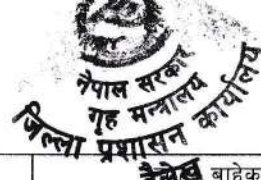 नेपाल सरकार
गृह मन्त्रालय
जिल्ला प्रशासन कार्यालय
दैलेख बाहेक